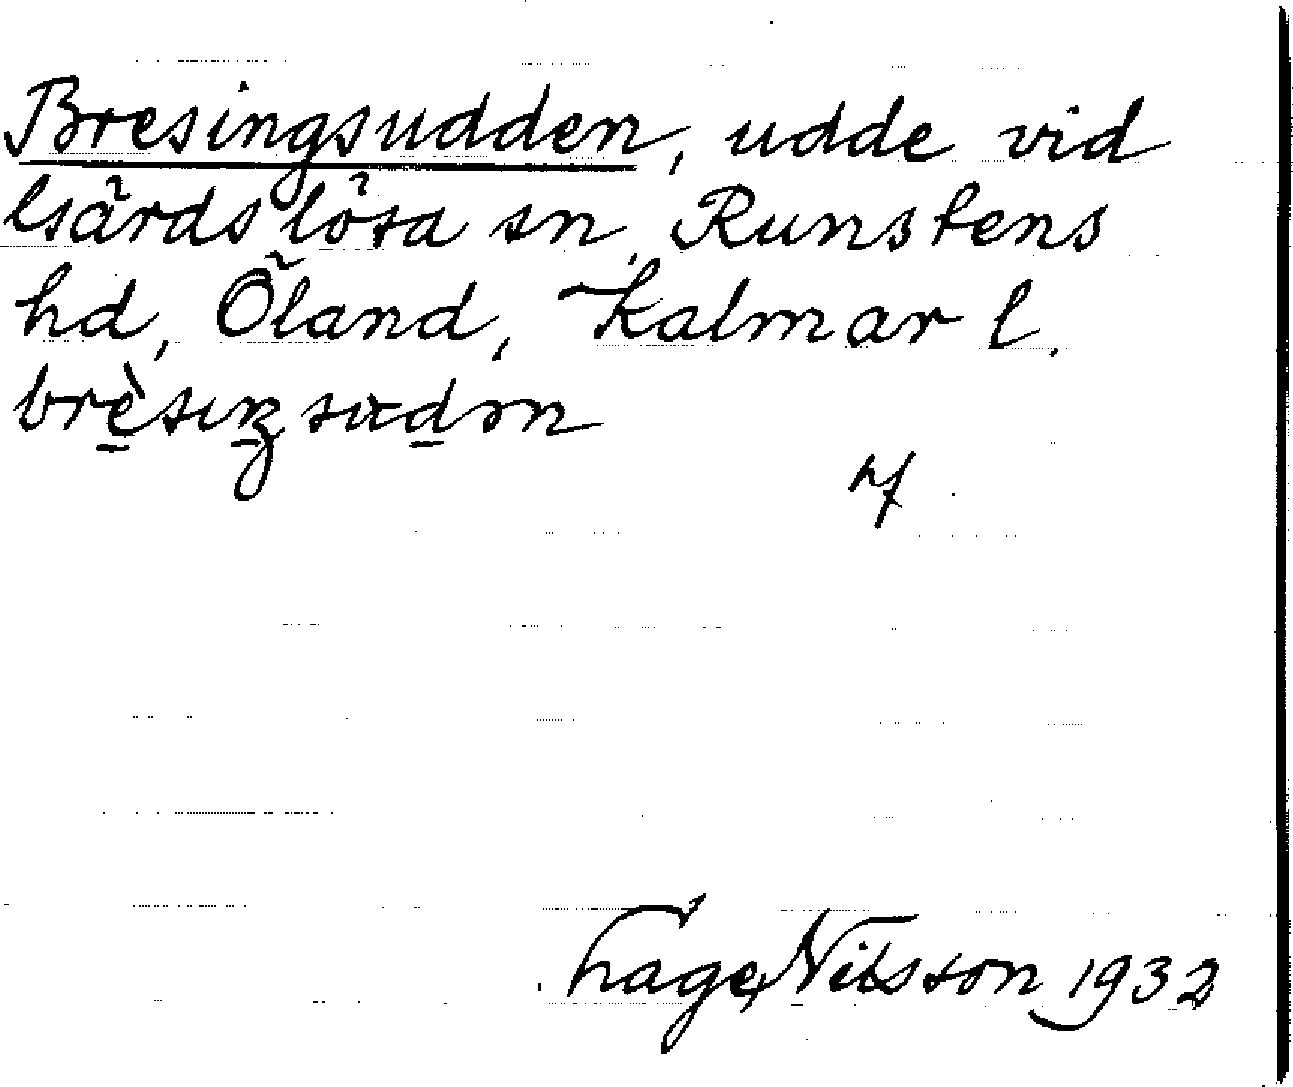 Bresingsudden, udde vid
Gärdslösa sn, Runstens
hd, Öland, Kalmar l.
Hage Nilsson 1932